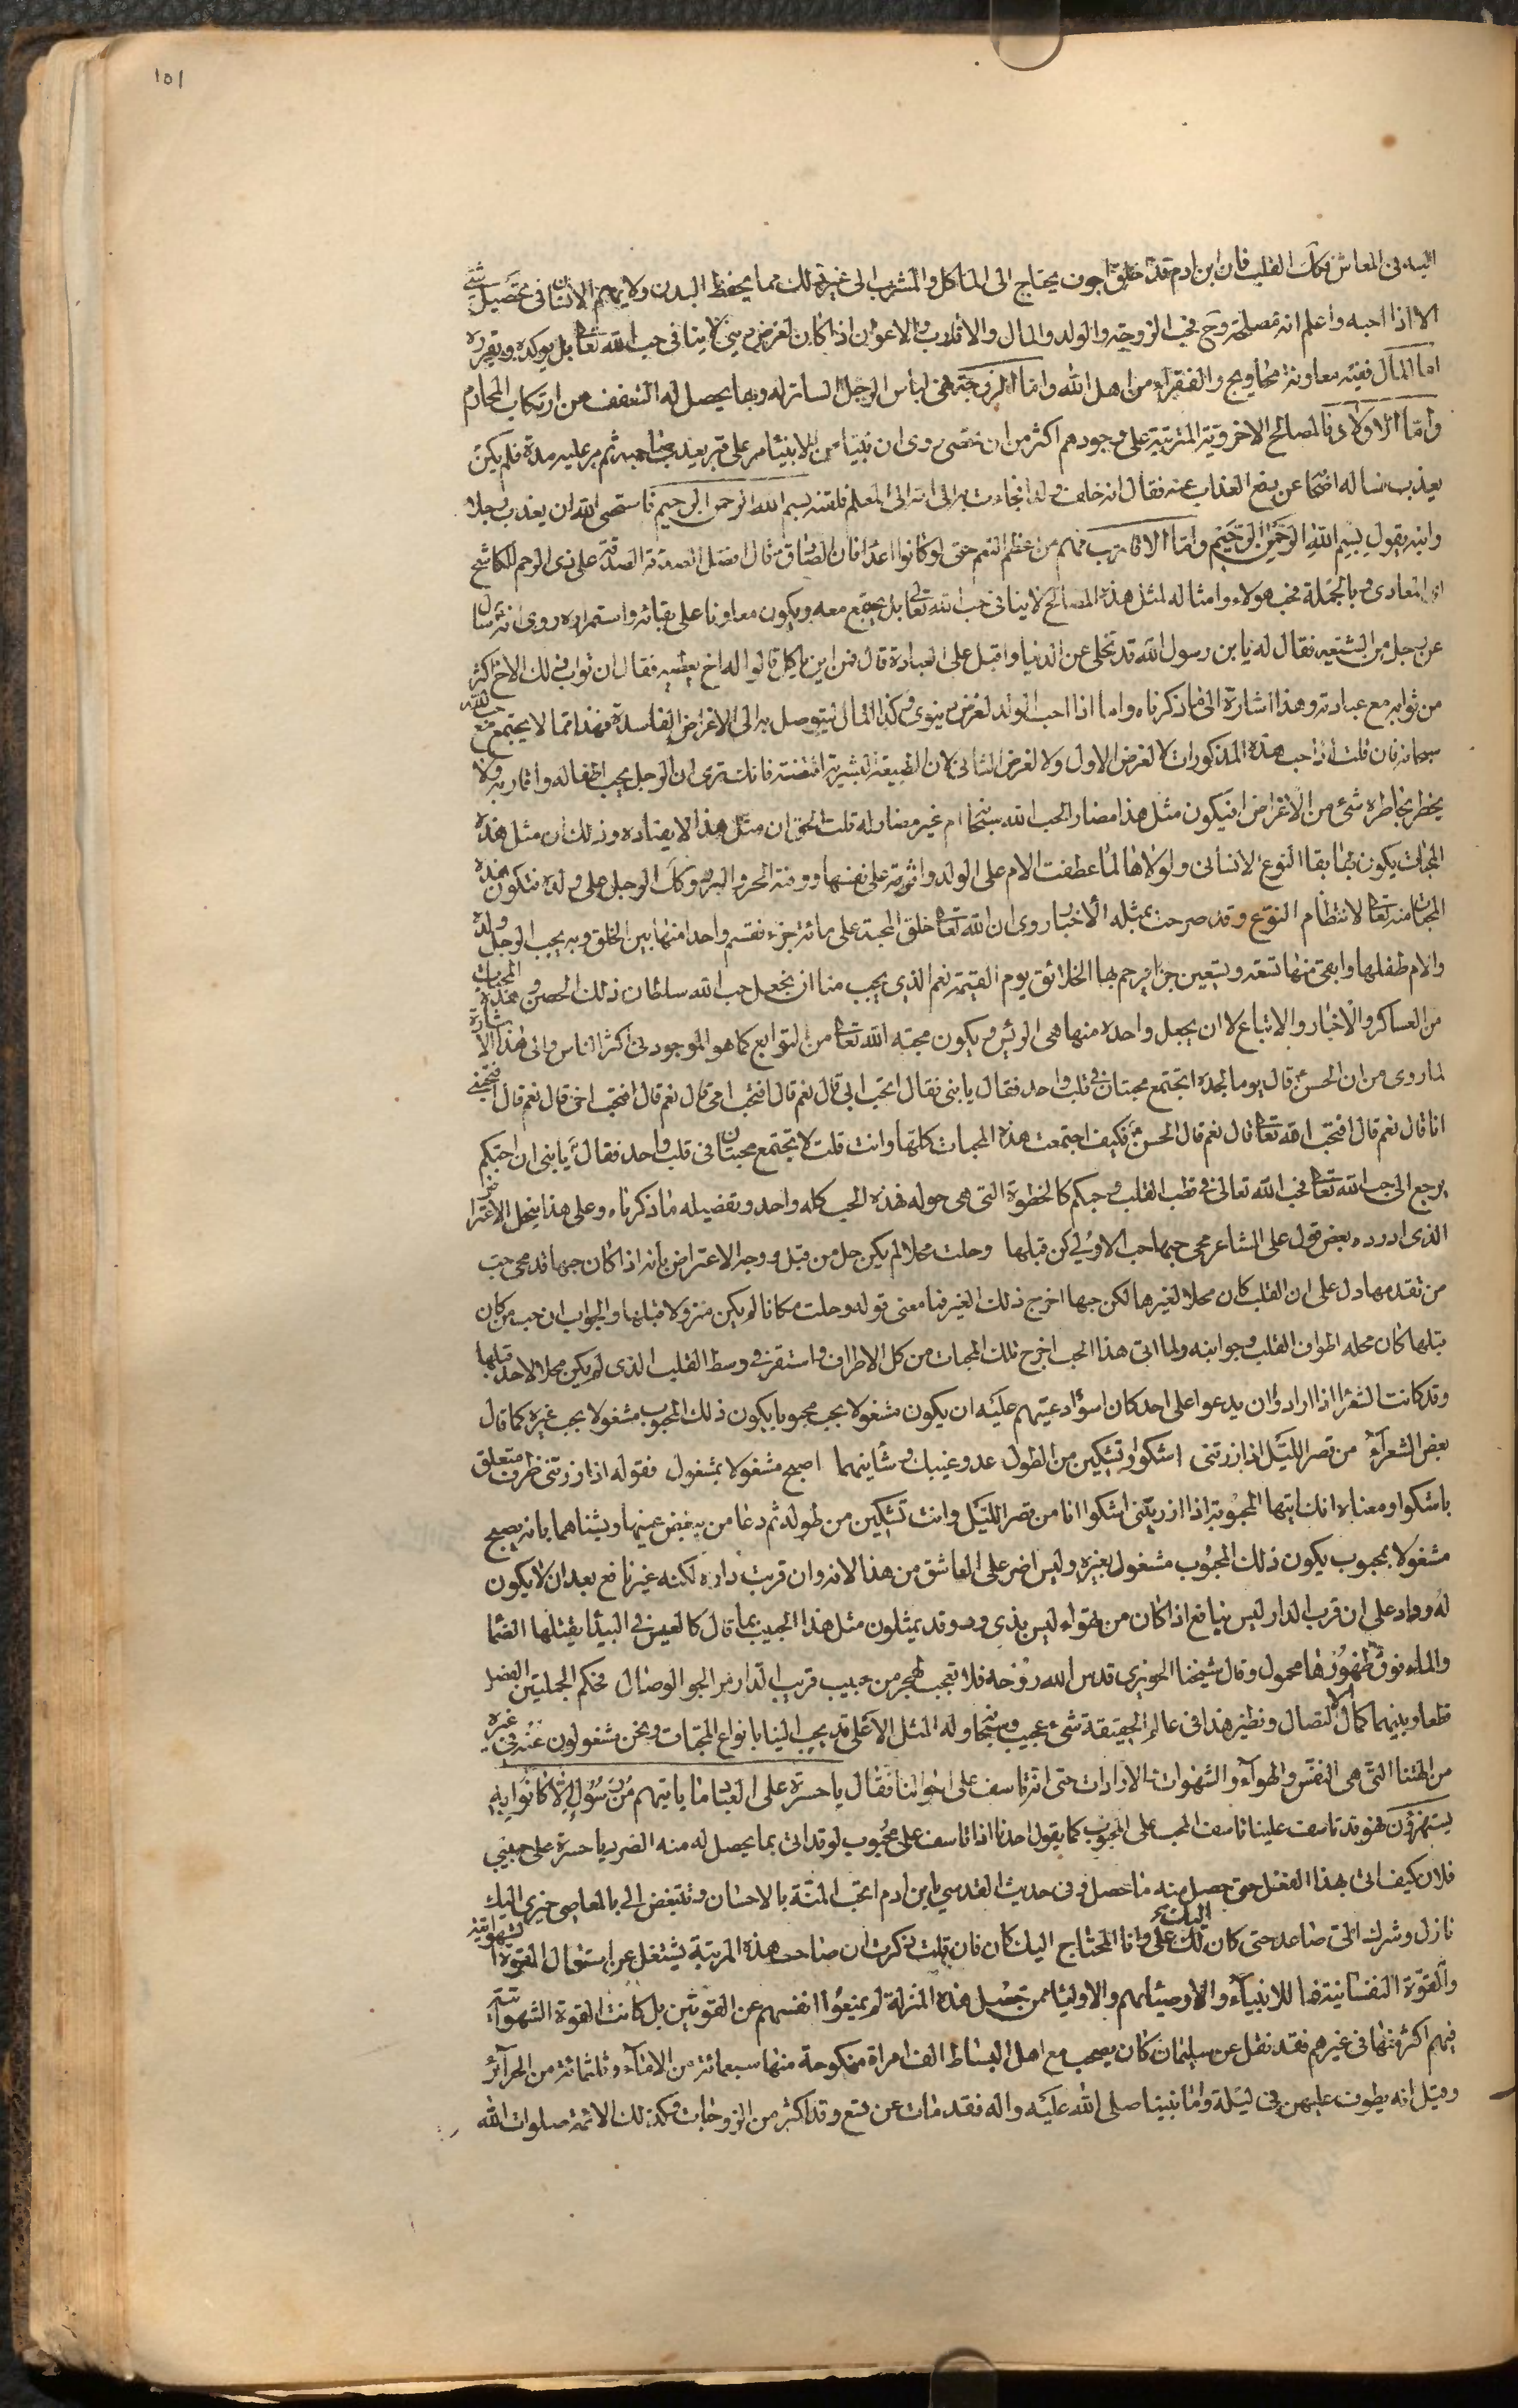 ١٥١
اليه فى المعاش وكك القلب فان ابن ادم قد خلق اجوف يحتاج الى الماكل والمشرب الى غير ذلك مما يحفظ البدن ولا يهتم الانسان فى تحصيل شىء
الا اذا احبه واعلم انه مصلحته وح فحب الزوجة والولد والمال والاقارب والاعوان اذا كان لغرض دينى لا ينافى حب الله تعالى بل يوكده ويقرره
اما المال ففيه معاونة محاويج والفقراء من اهل الله واما الزوجة فهى لباس الرجل الساتر له وبها يحصل له التعفف من ارتكاب المحارم
واما الاولاد فالمصالح الاخروية المترتبة على وجودهم اكثر من ان تحصى روى ان نبيا من الانبياء مر على قبر يعذب صاحبه ثم مر عليه مدة فلم يكن
يعذب فساله اصحابه عن رفع العذاب عنه فقال انه خلف ولدا فجاءت به امه الى المعلم فلقنه بسم الله الرحمن الرحيم فاستحيى الله ان يعذب رجلا
وابنه يقول بسم الله الرحمن الرحيم واما الاقارب فهم من اعظم النعم حتى لو كانوا اعداء فان الصادق قال افضل الصدقة الصدقة على ذى الرحم الكاشح
اى المعادى وبالجملة فحب هولاء وامثاله لمثل هذه المصالح لا ينافى حب الله تعالى بل يجتمع معه ويكون معاونا على بقائه واستمراره روى انه سال
عن رجل من الشيعة فقال له يا بن رسول الله قد تخلى عن الدنيا واقبل على العبادة قال فمن اين ياكل قالوا له اخ يعطيه فقال ان ثواب ذلك الاخ اكثر
من ثوابه مع عبادته وهذا اشارة الى ما ذكرناه واما اذا احب الولد لغرض دنيوى وكذا المال ليتوصل به الى الاغراض الفاسدة فهذا مما لا يجتمع مع حب الله
سبحانه فان قلت اذا حب هذه المذكورات لا لغرض الاول ولا لغرض الثانى لان الطبيعة البشرية اقتضته فانك ترى ان الرجل يحب اطفاله واقاربه ولا
يخطر بخاطره شىء من الاغراض افيكون مثل هذا مضار الحب الله سبحانه ام غير مضار له قلت الحق ان مثل هذا لا يضاده وذلك ان مثل هذه
المحبات يكون بها بقاء النوع الانسانى ولولاها لما عطفت الام على الولد واثرته على نفسها ووقته الحر والبرد وكك الرجل على ولده فتكون هذه
المحبات منه تعالى لانتظام النوع وقد صرحت بمثله الاخبار روى ان الله تعالى خلق المحبة على مائة جزء فقسم واحدا منها بين الخلق وبه يحب الرجل ولده
والام طفلها وابقى منها تسعة وتسعين جزا يرحم بها الخلائق يوم القيمة نعم الذى يجب منا ان نجعل حب الله سلطان ذلك الحصن وهذه المحبات
من العساكر والاخبار والاتباع لا ان يجعل واحدة منها هى الرئيس ويكون محبة الله تعالى من التوابع كما هو الموجود فى اكثر الناس والى هذا الاشارة
لما روى من ان الحسن قال يوما لجده ايجتمع محبتان فى قلب واحد فقال يا بنى فقال اتحب ابى قال نعم قال افتحب امى قال نعم قال افتحب اخى قال نعم قال افتحبنى
انا قال نعم قال افتحب الله تعالى قال نعم قال الحسن فكيف اجتمعت هذه المحبات كلها وانت قلت لا يجتمع محبتان فى قلب واحد فقال يا بنى ان احبكم
يرجع الى حب الله تعالى فحب الله تعالى فى قطب القلب وحبكم كالخطوة التى هى حوله فهذه الحب كله واحد وتفصيله ما ذكرناه وعلى هذا ينحل الاعتراض
الذى اورده بعض قول على الشاعر محى حبها حب الاولى كن قبلها وحلت محلا لم يكن حل من قبل ووجه الاعتراض بانه اذا كان حبها قد محى حب
من تقدمها دل على ان القلب كان محلا لغيرها لكن حبها اخرج ذلك الغير فما معنى قوله وحلت مكانا لم يكن منزولا قبلها والجواب ان حب من كان
قبلها كان محله اطراف القلب وجوانبه ولما اتى هذا الحب اخرج تلك المحبات من كل الاطراف واستقر فى وسط القلب الذى لم يكن محلا لاحد قبلها
وقد كانت الشعرا اذا ارادوا ان يدعوا على احد كان اسوء ادعيتهم عليه ان يكون مشغولا بحب محبوب يكون ذلك المحبوب مشغولا بحب غيره كما قال
بعض الشعراء من قصر الليل اذا زرتنى اشكوا وتشكين من الطول عدو عينيك وشأنيهما اصبح مشغولا بمشغول فقوله اذا زرتنى ظرف متعلق
باشكوا ومعناه انك ايتها المحبوبة اذا زرتنى اشكوا انا من قصر الليل وانت تشكين من طوله ثم دعا من يبغض عينيها ويشناهما بانه يصبح
مشغولا بمحبوب يكون ذلك المحبوب مشغول بغيره وليس اضر على العاشق من هذا لانه وان قربت داره لكنه غير نافع بعد ان لا يكون
له وداد على ان قرب الدار ليس بنافع اذا كان من تهواه ليس بذى ود وقد يمثلون مثل هذا الحبيب بما قال كالعيس فى البيداء يقتلها الظما
والماء فوق ظهورها محمول وقال شيخنا الحويزى قدس الله روحه فلا تعجب لهجر من حبيب قريب الدار مرجو الوصال فحكم الجملتين الفصل
قطعا وبينهما كمال الاتصال ونظير هذا فى عالم الحقيقة شىء عجيب وسبحانه وله المثل الاعلى قد يحب الينا بانواع المحبات ونحن مشغولون عنه فى غيره
من الهتنا التى هى النفس والهواء والشهوات والارادات حتى انه تاسف على احوالنا فقال يا حسرة على العباد ما ياتيهم من رسول الا كانوا به
يستهزؤن فهو قد تاسف علينا تاسف المحب على المحبوب كما يقول احدنا اذا تاسف على محبوب له قد اتى بما يحصل له منه الضرر يا حسرة على حبيبى
فلان كيف اتى بهذا الفعل حتى حصل منه ما حصل وفى حديث القدسى يا بن ادم اتحبب اليك بالاحسان وتتبغض الى بالمعاصى خيرى اليك
نازل وشرك الى صاعد حتى كان لك على وانا المحتاج اليك كان فان قلت ذكرت ان صاحب هذه المرتبة يشتغل عن استعمال القوة الشهوانية
والقوة النفسانية فما للانبياء والاوصياء لهم والاولياء ممن حصل هذه المنزلة لم يمنعوا انفسهم عن القوتين بل كانت القوة الشهوانية
فيهم اكثر منها فى غيرهم فقد نقل عن سليمان كان يصحب مع اهل البساط الف امراة منكوحة منها سبعمائة من الاماء وثلثمائة من الحرائر
وقيل انه يطوف عليهن فى ليلة واما نبينا صلى الله عليه واله فقد مات عن تسع وقد اكثر من الزوجات وكذلك الائمة صلوات الله